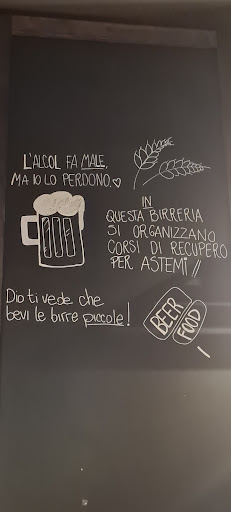 L'ALCOL FA MALE,
MA IO LO PERDONO.♡
IN
QUESTA BIRRERIA
SI ORGANIZZANO
CORSI DI RECUPERO
PER ASTEMI!!
Dio ti vede che
bevi le birre piccole!
BEER
FOOD